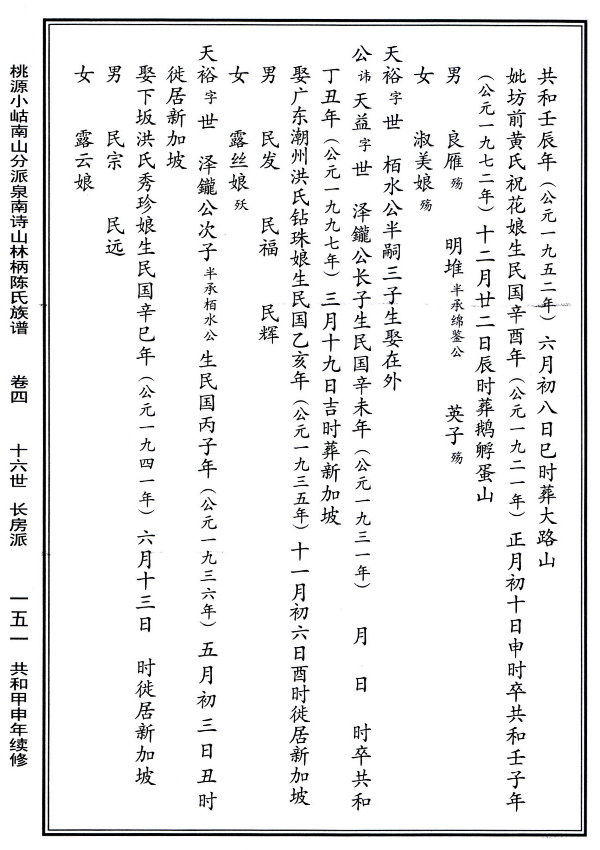 共和壬辰年（公元一九五二年）六月初八日巳时葬大路山
妣坊前黄氏祝花娘生民国辛酉年（公元一九二一年）正月初十日申时卒共和壬子年
（公元一九七二年）十二月廿二日辰时葬鹅孵蛋山
男 良雁 殇 明堆 半承绵鉴公 英子 殇
女 淑美娘 殇
天裕 字 世 栢水公半嗣三子生娶在外
公 讳 天益 字 世 泽鑨公长子生民国辛未年（公元一九三一年） 月 日 时卒共和
丁丑年（公元一九九七年）三月十九日吉时葬新加坡
娶广东潮州洪氏钻珠娘生民国乙亥年（公元一九三五年）十一月初六日酉时徙居新加坡
男 民发 民福 民辉
女 露丝娘 殀
天裕 字 世 泽鑨公次子 半承栢水公 生民国丙子年（公元一九三六年）五月初三日丑时
徙居新加坡
娶下坂洪氏秀珍娘生民国辛巳年（公元一九四一年）六月十三日 时徙居新加坡
男 民宗 民远
女 露云娘
桃源小岵南山分派泉南诗山林柄陈氏族谱 卷四 十六世 长房派 一五一 共和甲申年续修